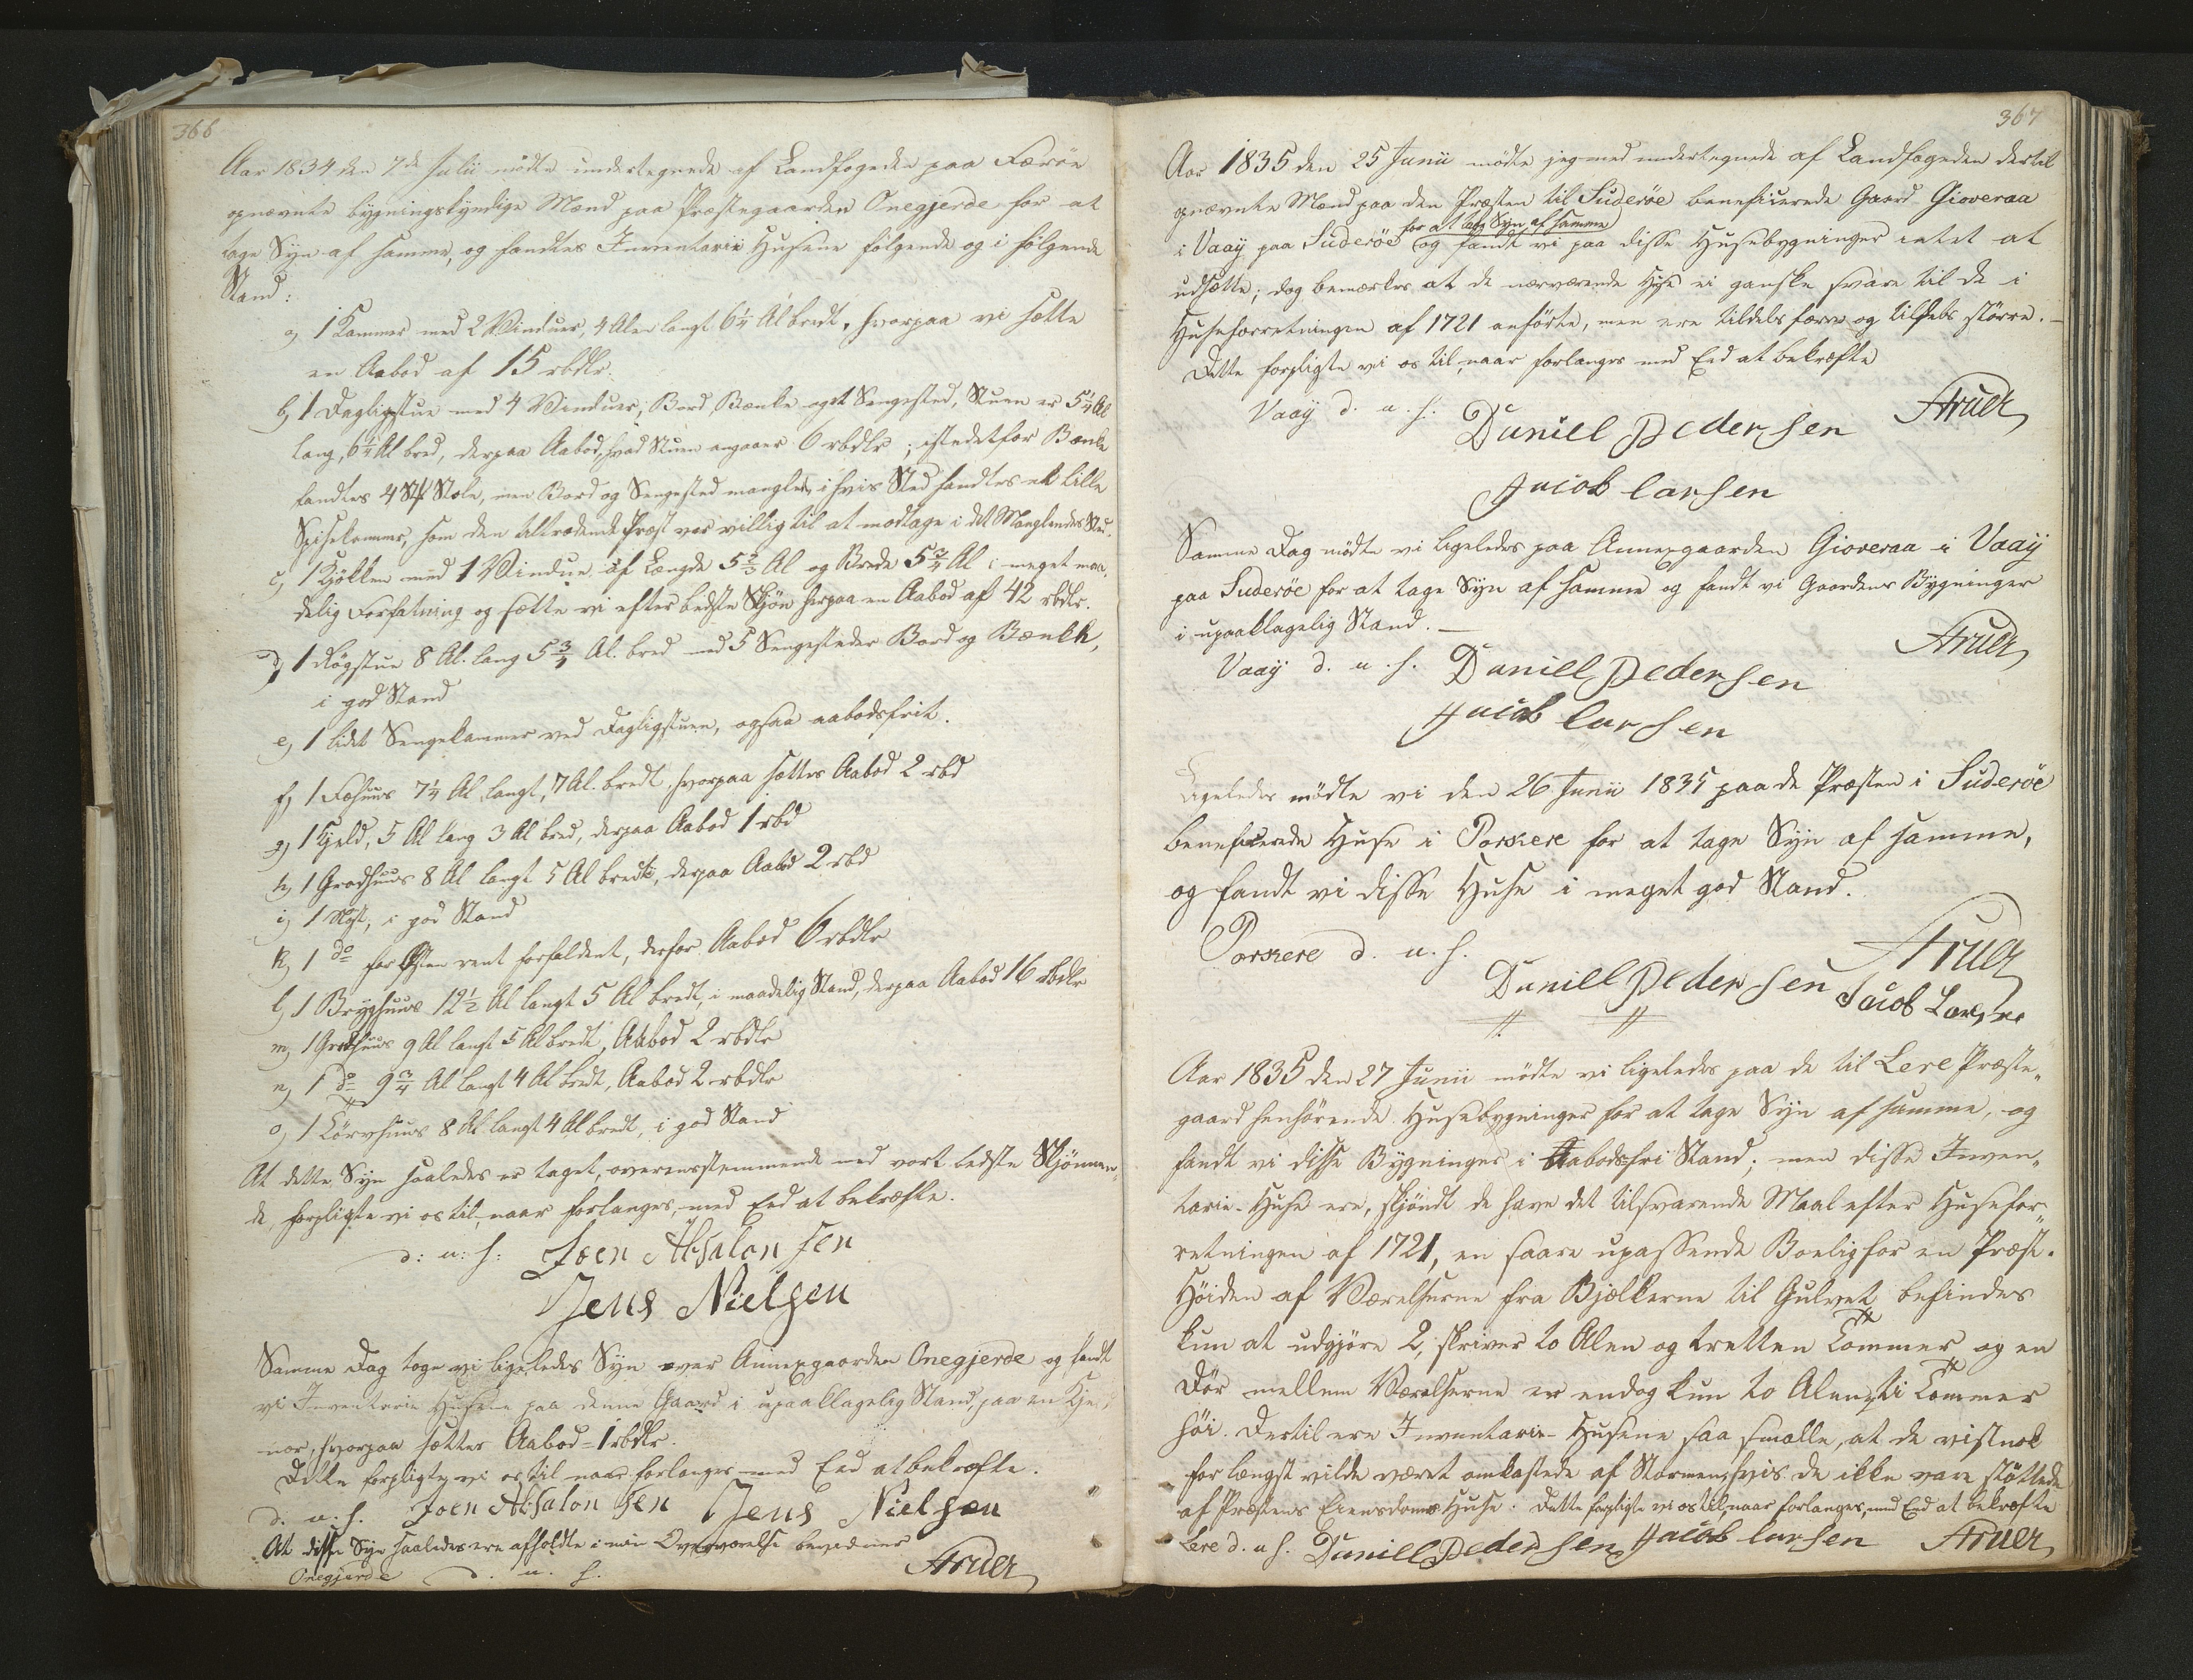 366
Aar 1834 den 7de Julii mödte undertegnede af Landfogeden paa Færöe
opnævnte bygningskyndige Mænd paa Præstegaarden Onegjerde for at
tage Syn af samme, og fandtes Inventarii Husene fölgende og i fölgende
Stand:
a, 1 Kammer med 2 Vinduer, 4 Alen langt 6 1/4 Al bredt, hvorpaa vi sætte
en Aabod af 15 rbdlr.
b, 1 Dagligstue med 4 Vinduer, Bord, Bænke og et Sengested, Stuen er 5 1/4 Al
lang, 6 1/4 Al bred, derpaa Aabod, hvad Stuen angaaer 6 rbdlr; istedetfor Bænke
fandtes 4 Stk Stole, men Bord og Sengested manglede, i hvis Sted fandtes et lille
Spisekammer, som den tiltrædende Præst var villig til at modtage i det Manglendes Sted.
c, 1 Kjökken med 1 Vindue af Længde 5 2/3 Al og Brede 5 3/4 Al i meget maa,
delig Forfatning og sætte vi efter bedste Skjön herpaa en Aabod af 42 rbdlr.
d, 1 Rögstue 8 Al. lang 5 3/4 Al. bred med 5 Sengesteder Bord og Bænkk,
i god Stand
e, 1 lidet Sengekammer ved Dagligstuen, ogsaa aabodsfrit.
f, 1 Fæhuus 7 1/4 Al langt, 7 Al. bredt, hvorpaa sættes Aabod 2 rbd
g, 1 Hjeld, 5 Al lang 3 Al bred, derpaa Aabod 1 rbd
h, 1 Grodhuus 8 Al langt 5 Al bredt, derpaa Aabod 2 rbd
i, 1 Nöst, i god Stand
k, 1 do for Östen rent forfaldent, derfor Aabod 6 rbdlr
l, 1 Bryghuus 12 1/2 Al langt 5 Al bredt, i maadelig Stand, derpaa Aabod 16 rbdlr
m, 1 Grodhuus 9 Al langt 5 Al bredt, Aabod 2 rbdlr
n, 1 do 9 3/4 Al langt 4 Al bredt, Aabod 2 rbdlr
o, 1 Törvhuus 8 Al langt 4 Al bredt, i god Stand
At dette Syn saaledes er taget, overensstemmende med vort bedste Skjönnen,
de, forpligte vi os til, naar forlanges, med Eed at bekræfte.
d: u: s: Joen Absalonsen
Jens Nielsen
Samme Dag toge vi ligeledes Syn over Annexgaarden Onegjerde og fandt
vi Inventarie Husene paa denne Gaard i upaaklagelig Stand, paa en Kje
nær, hvorpaa sættes Aabod = 1 rbdlr.
Dette forpligte vi os til naar forlanges med Eed at bekræfte.
d. u. s. Joen Absalonsen Jens Nielsen
At disse Syn saaledes ere afholdte i min Overværelse bevidner
Onegjerde d. u. s. Aruer
367
Aar 1835 den 25 Junii mödte jeg med undertegnede af Landfogeden dertil
opnævnte Mænd paa den Præsten til Suderöe beneficerede Gaard Gioveraa
for at tage Syn af samme
i Vaaÿ paa Suderöe og fandt vi paa disse Husebygninger intet at
udsætte; dog bemærkes at de nærværende Huse ei ganske svare til de i
Huseforretningen af 1721 anförte, men ere tildels færre og tildels större. —
Dette forpligte vi os til, naar forlanges med Eed at bekræfte
Vaaÿ d. u. s. Daniell Pedersen Aruer
Jacob Larsen
Samme Dag mödte vi ligeledes paa Annexgaarden Gioveraa i Vaaÿ
paa Suderöe for at tage Syn af samme og fandt vi Gaardens Bygninger
i upaaklagelig Stand. —
Vaaÿ d. u. s. Daniell Pedersen Aruer
Jacob Larsen
Ligeledes mödte vi den 26 Junii 1835 paa de Præsten i Suderöe
beneficerede Huse i Porkere for at tage Syn af samme,
og fandt vi disse Huse i meget god Stand.
Porkere d. u. s. Aruer
Daniell Pedersen Jacob Larsen
Aar 1835 den 27 Junii mödte vi ligeledes paa de til Lere Præste„
gaard henhörende Husebygninger for at tage Syn af samme, og
fandt vi disse Bygninger i Aabodsfri Stand; men disse Inven„
tarie-Huse ere, skjöndt de have det tilsvarende Maal efter Husefor„
retningen af 1721, en saare upassende Boelig for en Præst.
Höiden af Værelserne fra Bjælkerne til Gulvet befindes
kun at udgjöre 2, skriver to Alen og tretten Tommer og en
Dör mellem Værelserne er endog kun to Alen, ti Tommer
höi. Dertil ere Inventarie-Husene saa smalle, at de vistnok
for længst vilde været omkastede af Stormen, hvis de ikke vare stöttede
af Præstens Eiendoms Huse. Dette forpligte vi os til, naar forlanges, med Eed at bekræfte
Lere d. u. s. Daniell Pedersen Jacob Larsen Aruer